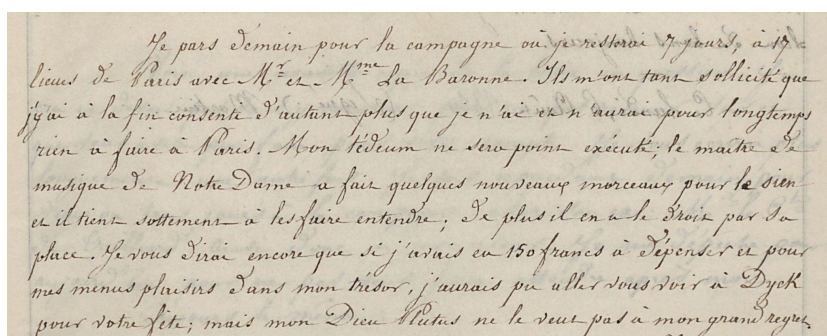 Je pars demain pour la campagne où je resterai 7 jours, à 17
lieues de Paris avec Mr et Mme La Baronne. Ils m'ont tant sollicité que
j'y ai à la fin consenti d'autant plus que je n'ai et n'aurai pour longtemps
rien à faire à Paris. Mon tédeum ne sera point exécuté; le maître de
musique de Notre Dame a fait quelques nouveaux morceaux pour le sien
et il tient sottement à les faire entendre; de plus il en a le droit par sa
place. Je vous dirai encore que si j'avais eu 150 francs à dépenser et pour
mes menus plaisirs dans mon trésor, j'aurais pu aller vous voir à Dyck
pour votre fête; mais mon Dieu Plutus ne le veut pas à mon grand regret.